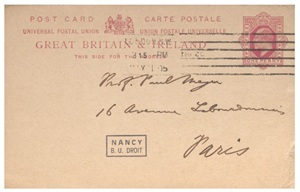 POST CARD CARTE POSTALE
UNIVERSAL POSTAL UNION UNION POSTALE UNIVERSELLE
GREAT BRITAIN & IRELAND
THIS SIDE FOR THE
3.15 PM
Prof. Paul Meyer
16 Avenue
Paris
NANCY
B. U. DROIT